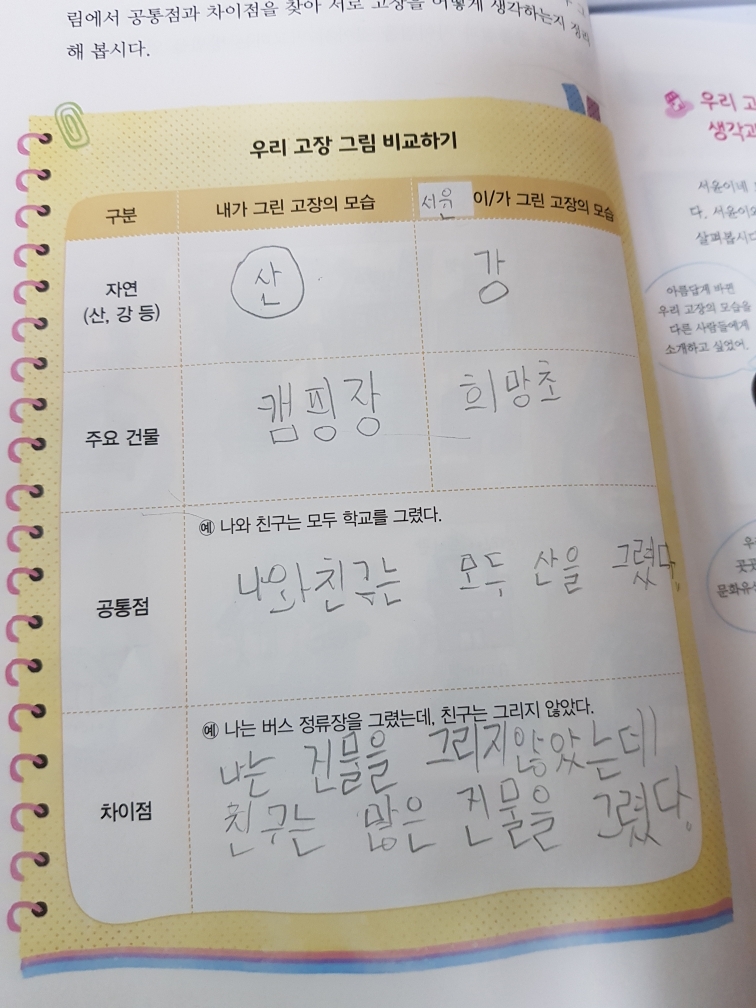 림에서 공통점과 차이점을 찾아 서로 고장을 어떻게 생각하는지 정리
해 봅시다.
우리 고장 그림 비교하기
구분 내가 그린 고장의 모습 서윤 이/가 그린 고장의 모습
자연
(산, 강 등)
산 강
주요 건물 캠핑장 희망초
공통점
예 나와 친구는 모두 학교를 그렸다.
나와 친구는 모두 산을 그렸다.
차이점
예 나는 버스 정류장을 그렸는데, 친구는 그리지 않았다.
나는 건물을 그리지않았는데
친구는 많은 건물을 그렸다.
우리 고
생각과
서윤이네
다. 서윤이와
살펴봅시다
아름답게 바뀐
우리 고장의 모습을
다른 사람들에게
소개하고 싶었어.
우
곳곳
문화유산